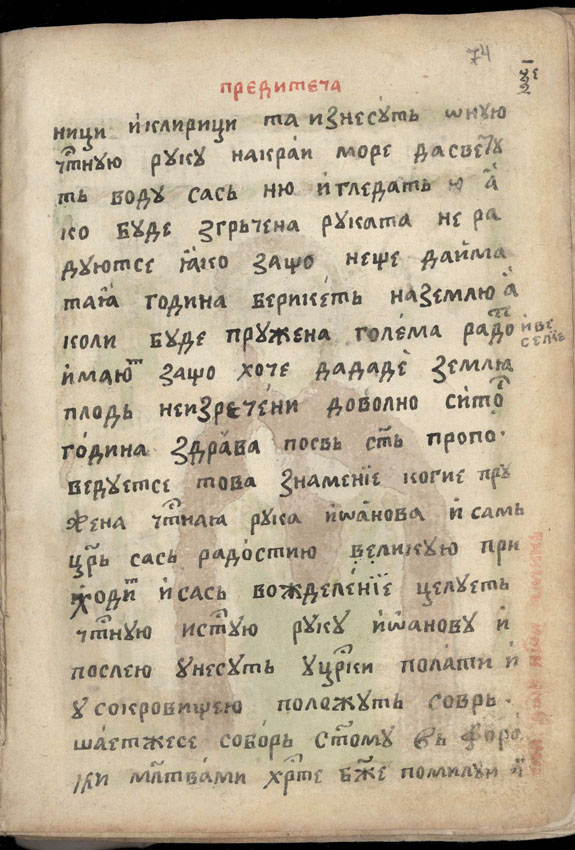 74
предитеча
ници и҆клирици та изнесуть ѡную
чⷭ҇тную руку накраи море дасветꙋ
ть воду сась ню и҆гледать ю а҆
ко буде згрьчена руката не ра
дуютсе ꙗ҆ко защо неще даи҆ма
таꙗ҆ година берикеть наземлю а҆
коли буде пружена голема радⷭ҇о и҆ве селїе
и҆маюⷮ защо хоче дададе землꙗ
плодь неизречени доволно си
година здрава посвь ст҃ь пропо
ведуетсе това знаменїе когие пру
жена чⷭ҇тнаꙗ рука и҆ѡ҆анова и҆ самь
цр҃ь сась радостию великую при
ходиⷮ и҆сась вожделенїе целуеть
чⷭ҇тную истую руку и҆ѡ҆анову и҆
послею унесуть уцр҃ки полати и҆
у сокровищею положуть совръ
шаетжесе соборь ст҃ому вь форо
ки мл҃твами хрⷭ҇те бж҃е помилуи